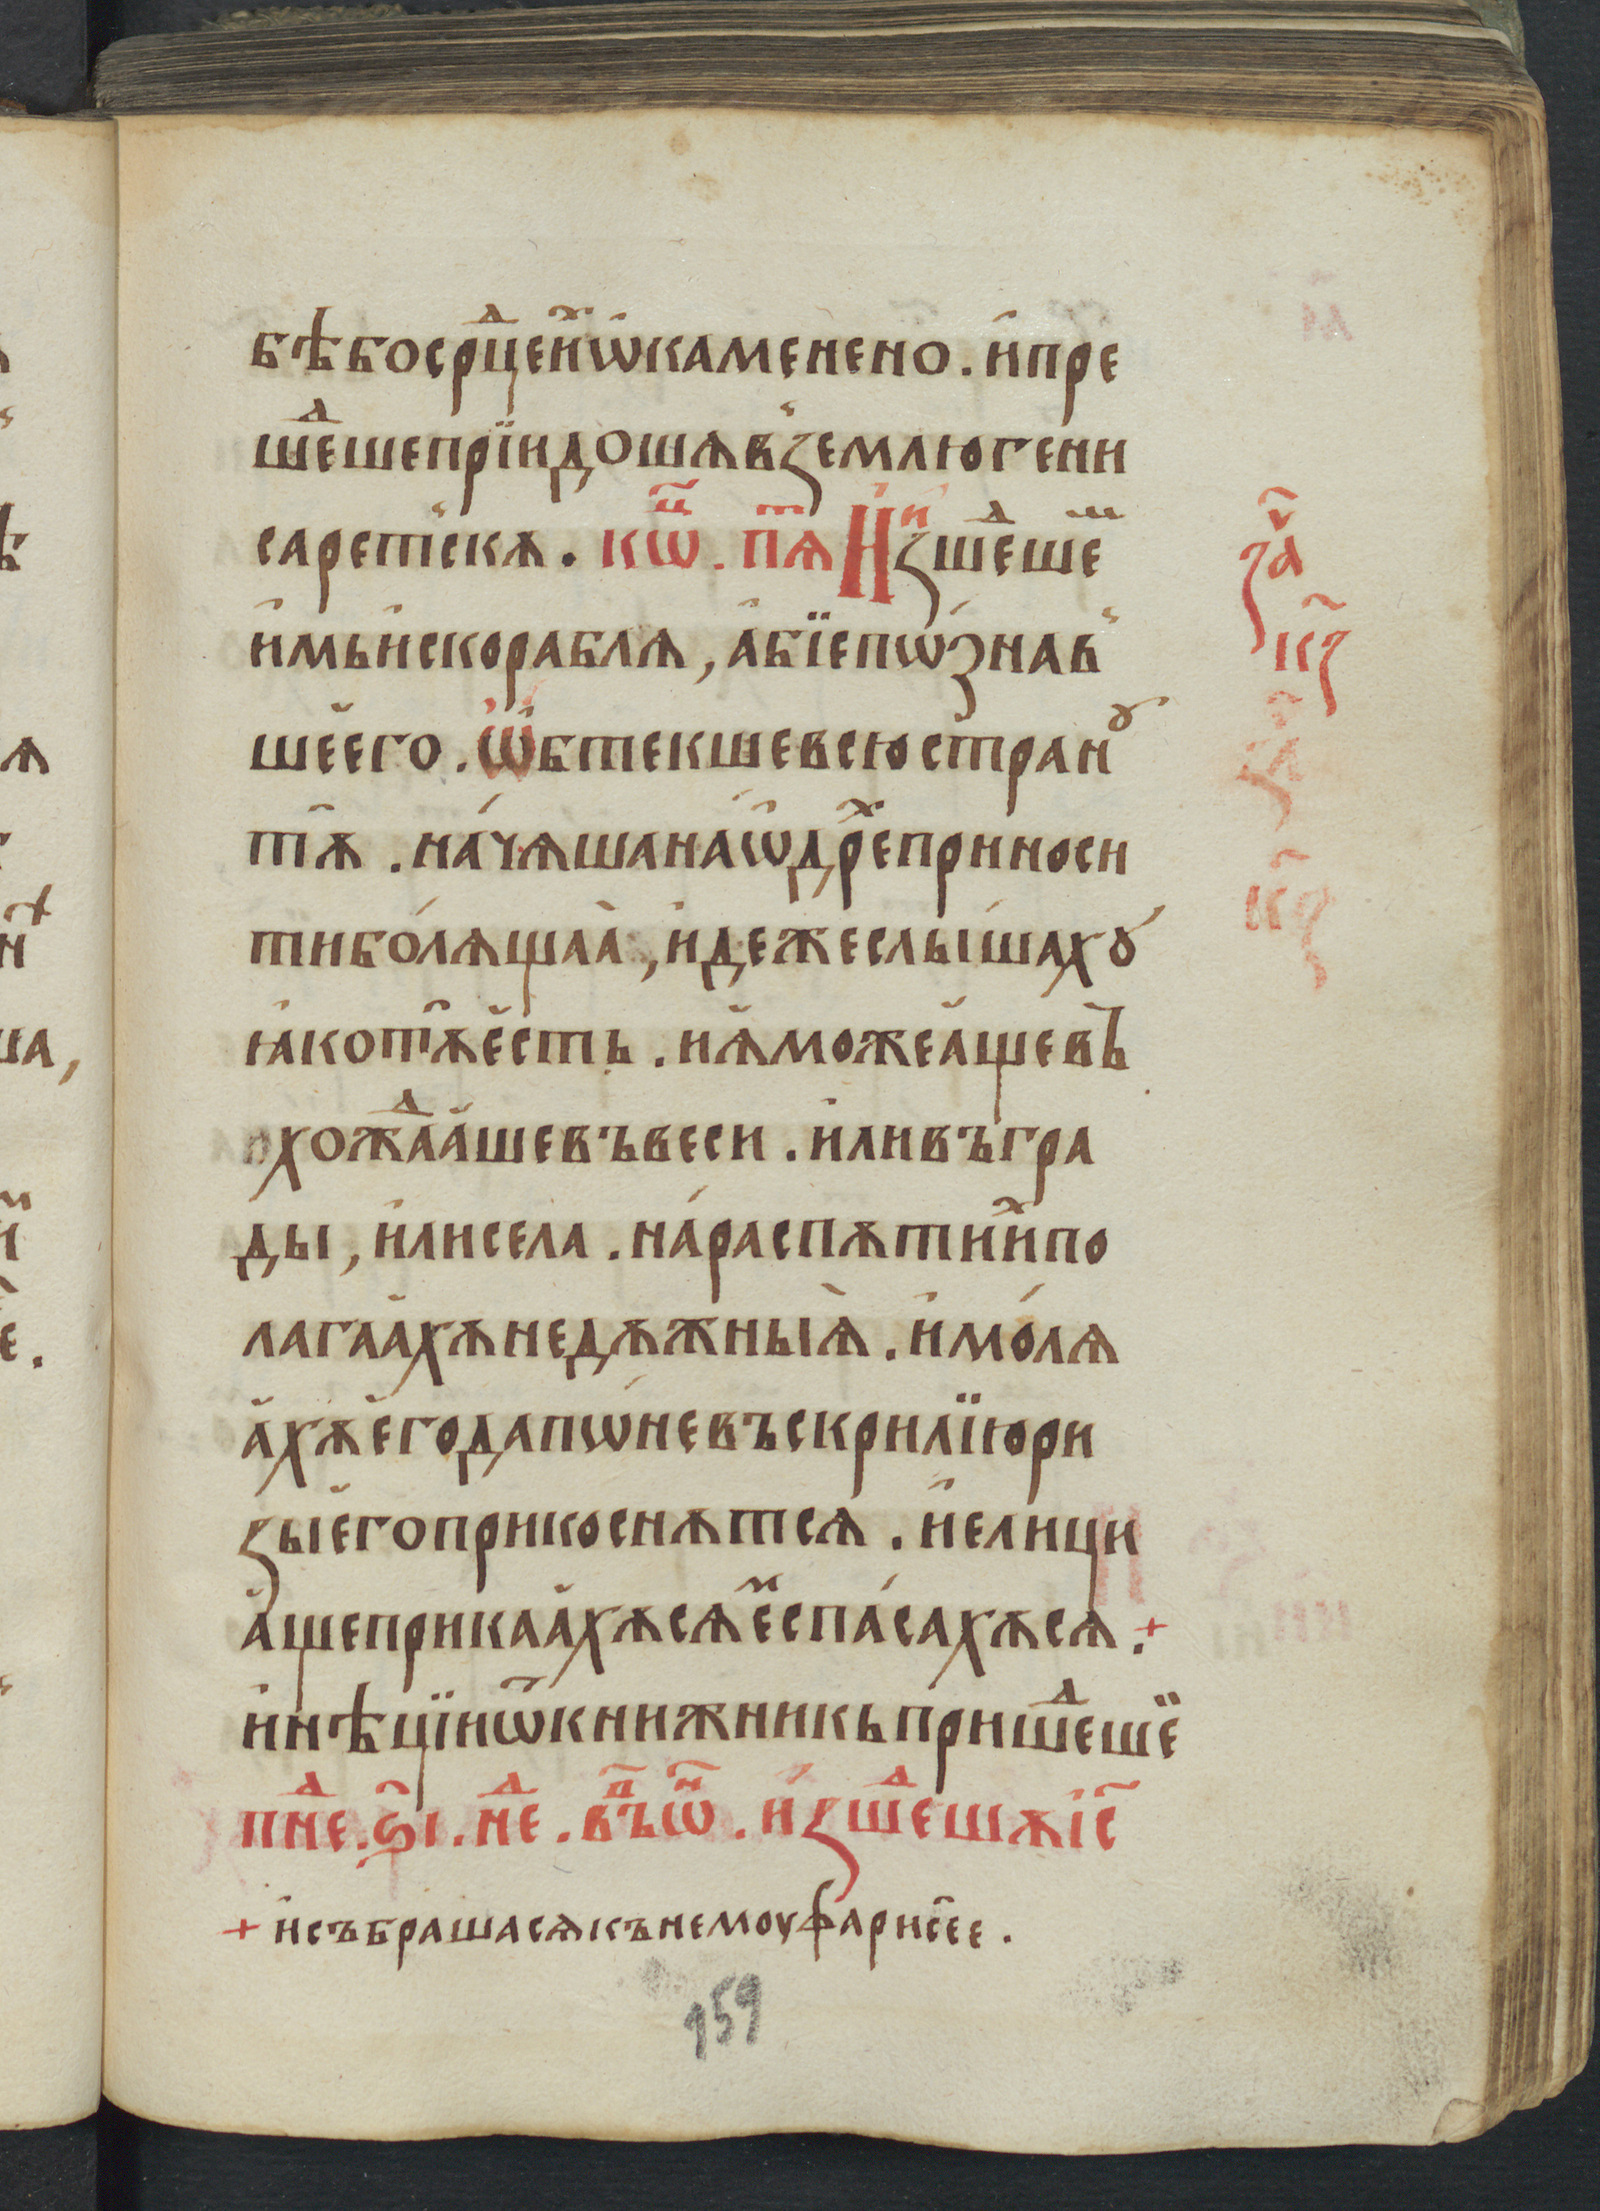 бѣбосрⷣцеи̑ⷯѡ̑каменено. и̑пре
шеⷣшепрїидошѧвʼземлюгени
саретʼскѫ. кѡⷰ҇. пⷮѧ Ии̑зшеⷣшеⷨ
и̑мьи̑скораблѧ, а̑бїепѡзнавʼ
шеего. ѡ̑бтекшевсюстранꙋ
тѫ̑. начѧшанаѡ̑дрⷯеприноси
тиболѧщаа, идежеслышахꙋ
ꙗ̑котꙋе̑сть. иѧ̑можеа̑щевъ
хожаⷣа̑шевъвеси. и̑ливъгра
ды, и̑лисела. нараспѫтииⷯпо
лагаахѫнедѫжныѧ. и̑молѧ
а̑хѫе̑годапѡневъскрилїюри
зыегоприкоснѫтсѧ. и̑елици
а̑щеприкаахѫсѧеⷨспасахѫсѧ. +
и̑нѣцїиѿкнижникьпришеⷣшеї
пнⷣе. ѕ҃ı. нⷣе. вⷫъѡⷩ. и̑зшеⷣшѫіс҃
+ и̑събрашасѧкънемоуфарисее.
за҃ч
к҃з
159